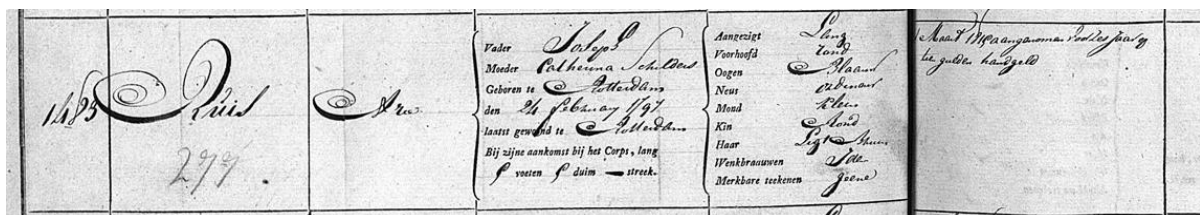 1485 Ruis Arie
277.
Vader Joseph
Moeder Catherina Schilders
Geboren te Rotterdam
den 24 february 1797
laatst gewoond te Rotterdam
Bij zijne aankomst bij het Corps, lang
5 voeten 5 duim — streek.
Aangezigt Lang
Voorhoofd rond
Oogen Blaauw
Neus ordinair
Mond klein
Kin Rond
Haar Ligt Bruin
Wenkbraauwen Ide
Merkbare teekenen geene
Maart aangenomen voor zes jaar
tien gulden handgeld